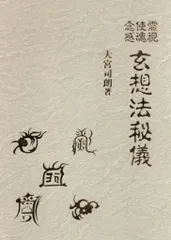 霊視
使魂
念感
玄想法秘儀
大宮司朗著